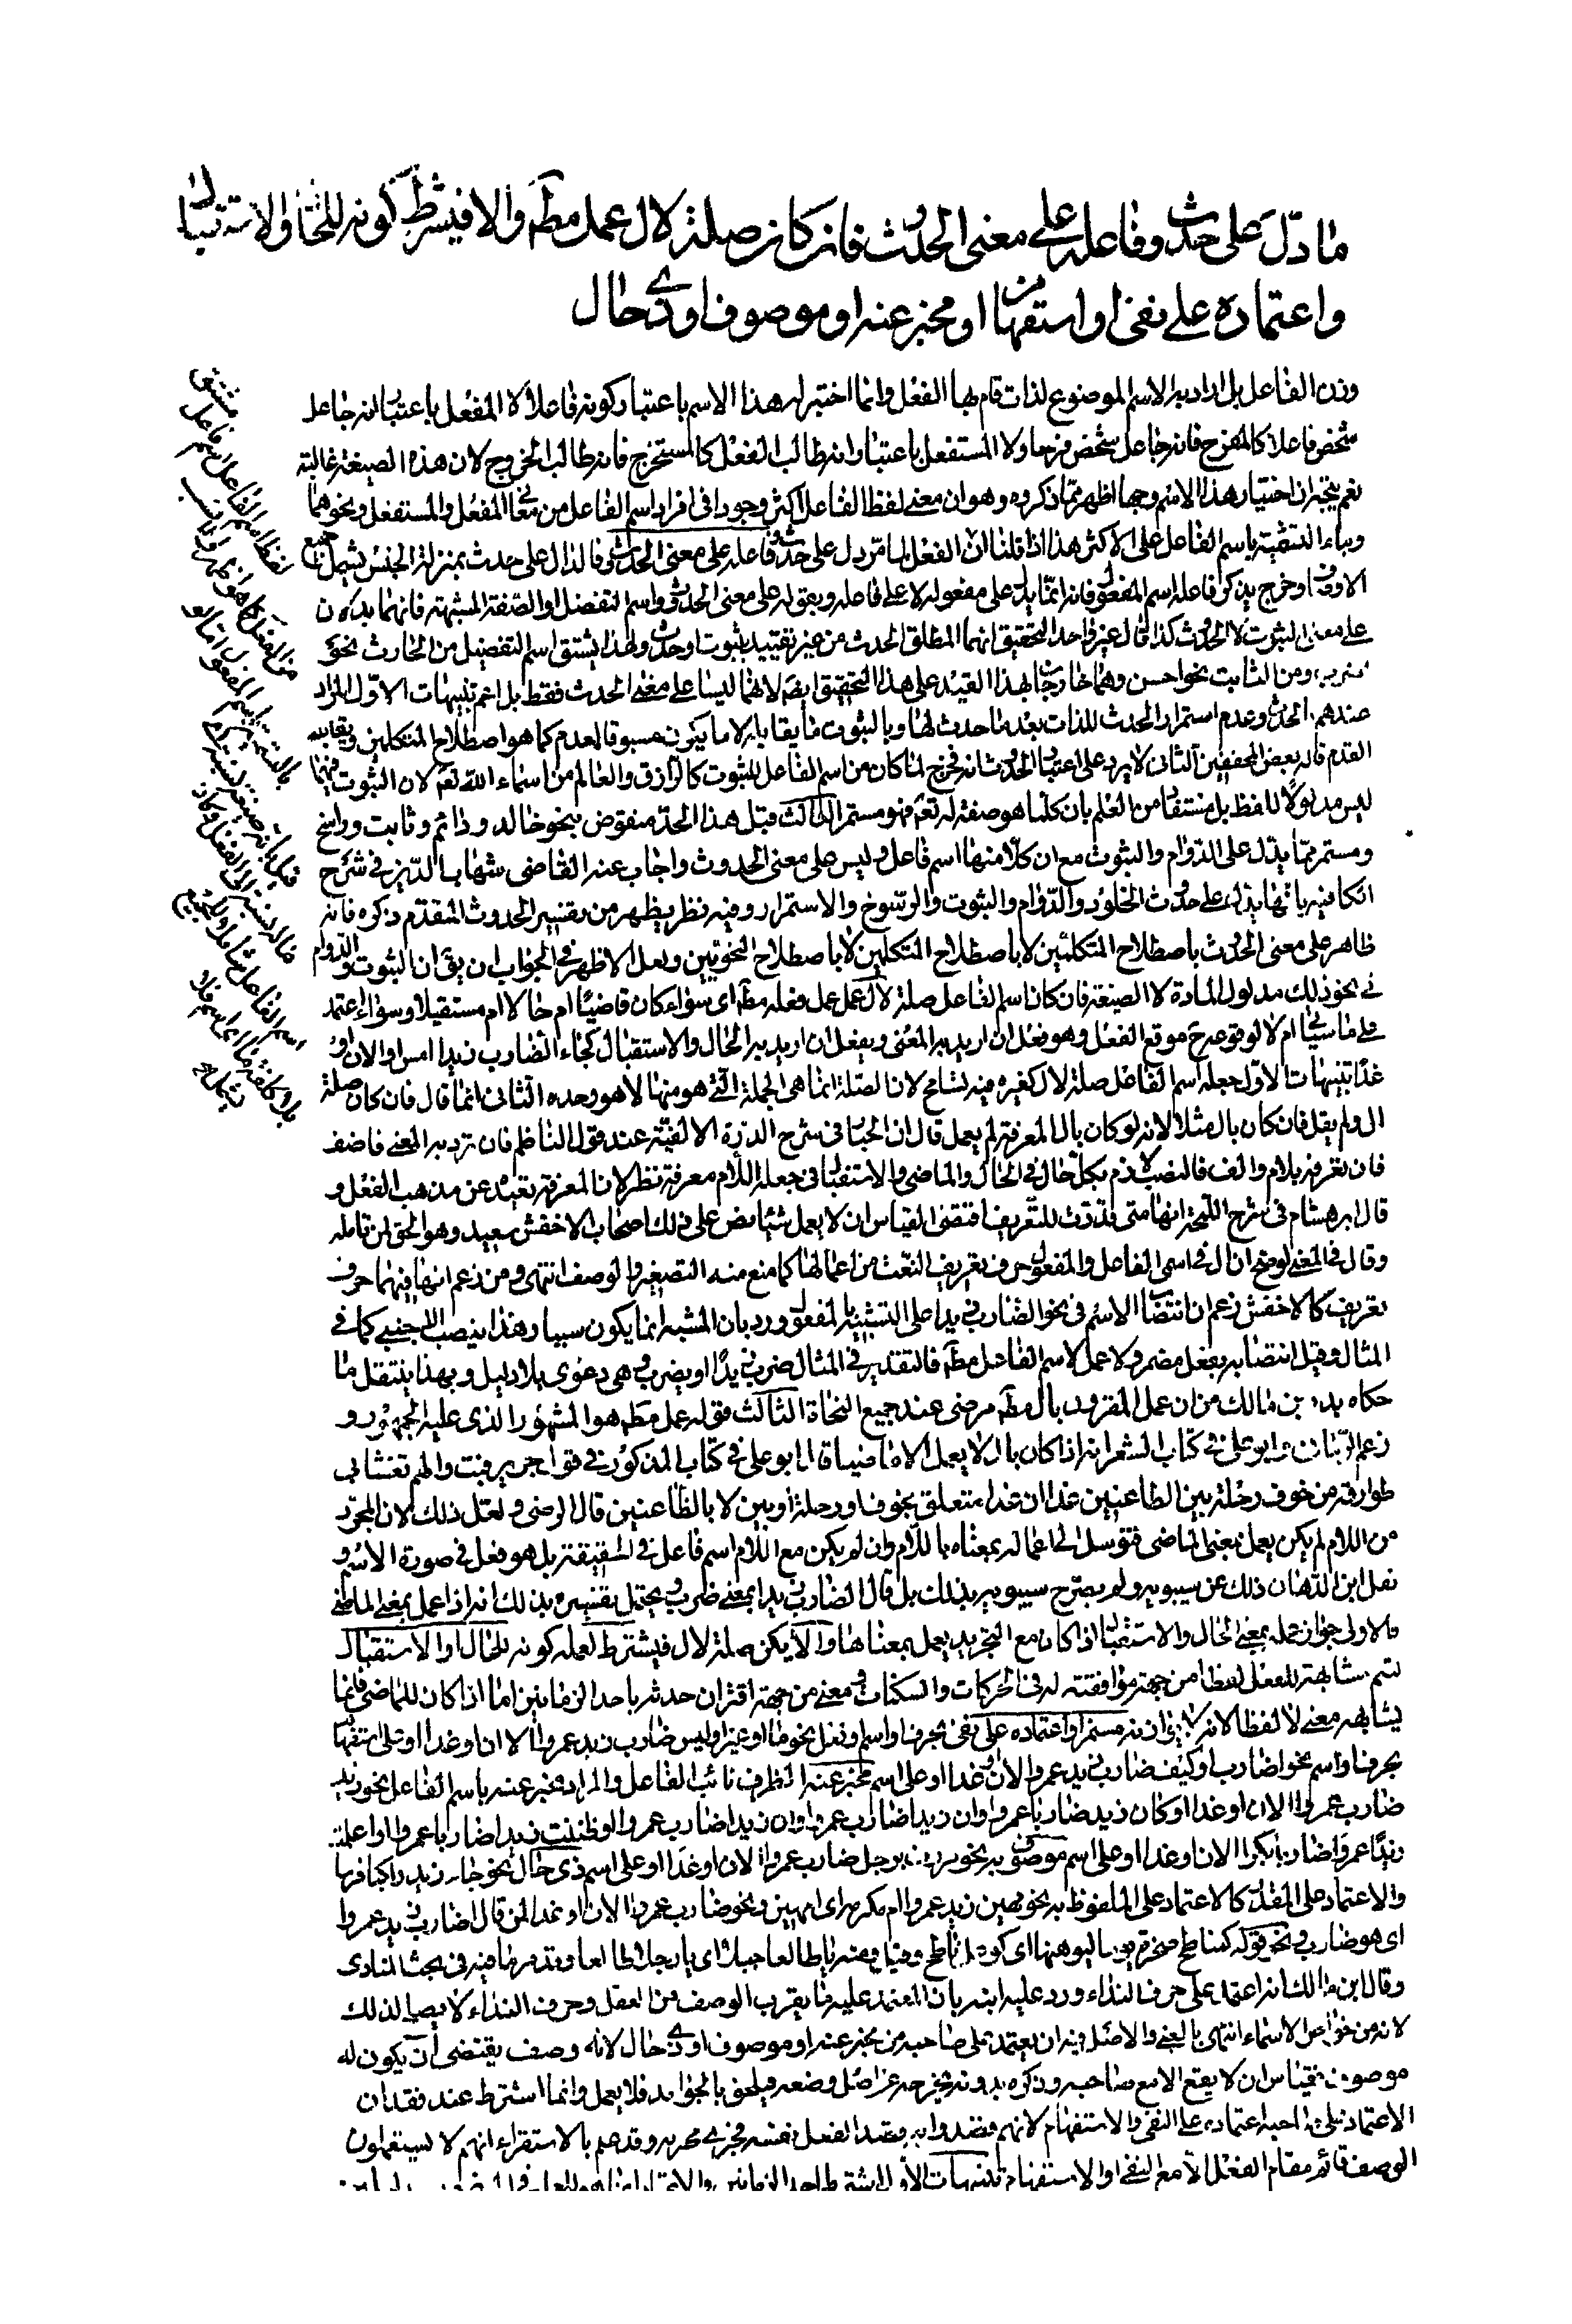 ما دلّ على حدث وفاعله على معنى الحدوث فان كان صلة لال عمل مطه والا فيشترط كونه للحال والاستقبال
واعتماده على نفى او استفهام او مخبر عنه او موصوف او ذي حال
وزن الفاعل بل اراد به الاسم الموضوع لذات قام بها الفعل وانما اختير له هذا الاسم باعتبار كونه فاعلا لا المفعل باعتبار انه جاعل
شخص فاعلا كالمفرح فانه جاعل شخص فرحا ولا المستفعل باعتبار انه طالب الفعل كالمستخرج فانه طالب الخروج لان هذه الصيغة غالبة
نعم يتجه ان اختيار هذا الاسم وجها اظهر مما ذكروه وهو ان معنى لفظ الفاعل اكثر وجودا فى افراد اسم الفاعل من معانى المفعل والمستفعل ونحوهما
وبناء التسمية باسم الفاعل على الاكثر هذا اذا قلنا ان الفعل لما مرّ دل على حدث وفاعله على معنى الحدوث فالدال على حدث بمنزلة الجنس يشمل جميع
الاوصاف وخرج بذكر فاعله اسم المفعول فانه انما يدل على مفعوله لا على فاعله وبقوله على معنى الحدوث اسم التفضيل والصفة المشبهة فانهما يدلان
على معنى الثبوت لا الحدوث كذا قال غير واحد والتحقيق انهما لمطلق الحدث من غير تقييد بثبوت او حدوث ولهذا يشتق اسم التفضيل من الحادث نحو
اضرب ومن الثابت نحو احسن وهما خارجان بهذا القيد على هذا التحقيق ايضه لانهما ليسا على معنى الحدث فقط بل اعم تنبيهات الاوّل المراد
عندهم الحدوث وعدم استمرار الحدث للذات بعد ما حدث لها وبالثبوت ما يقابله لا ما يكون مسبوقا لعدم كما هو اصطلاح المتكلمين ويقابله
القدم قاله بعض المحققين الثانى لا يرد على اعتبار الحدوث انه يخرج لما كان من اسم الفاعل للثبوت كالرازق والعالم من اسماء الله تعه لان الثبوت فيهما
ليس مدلولا للفظ بل مستفاد من العلم بان كلما هو صفة له تعه فهو مستمر الثالث قيل هذا الحدّ منقوض بنحو خالد ودائم وثابت وراسخ
ومستمر مما يدل على الدوام والثبوت مع ان كلا منها اسم فاعل وليس على معنى الحدوث واجاب عنه القاضى شهاب الدين فى شرح
الكافية بانها يدل على حدوث الخلود والدوام والثبوت والرسوخ والاستمرار وفيه نظر يظهر من تفسير الحدوث المتقدم ذكره فانه
ظاهر على معنى الحدوث باصطلاح المتكلمين لا باصطلاح النحويين ولعل الاظهر فى الجواب ان يق ان الثبوت والدوام
فى نحو ذلك مدلول المادة لا الصيغة فان كان اسم الفاعل صلة لال عمل عمل فعله مطه اى سواء كان ماضيا ام حالا ام مستقبلا وسواء اعتمد
على ما سياتى ام لا لوقوعه ح موقع الفعل وهو فعل ان اريد به المضى ويفعل ان اريد به الحال والاستقبال كجاء الضارب زيدا امس او الان او
غدا تنبيهات الاوّل جعله اسم الفاعل صلة لال كغيره فيه تسامح لان الصلة انما هى الجملة التى هو منها لا هو وحده الثانى انما قال فان كان صلة
ال ولم يقل فان كان بال مثلا لانه لو كان بال المعرفة لم يعمل قال ابن الخباز فى شرح الدرة الالفية عند قول الناظم فان ترد به المعنى فاضف
فان تعرفه بلام والف فالنصب لازم بكل حال فى الحال والماضى والاستقبال فى جعله اللام معرفة نظر لان المعرفة تبعد عن مذهب الفعل و
قال ابن هشام فى شرح اللمحة انها متى قدرت للتعريف اقتضى القياس ان لا يعمل شيئا نص على ذلك اصحاب الاخفش سعيد وهو الحق لمن تامله
وقال فى المغنى لو صح ان ال فى اسمى الفاعل والمفعول حرف تعريف لتمنعت من اعمالها كما منع منه التصغير والوصف انتهى ومن زعم انها فيهما حرف
تعريف كالاخفش زعم ان انتصاب الاسم فى نحو الضارب زيدا على التشبيه بالمفعول ورد بان المشبه انما يكون سببيا وهذا ينصب الاجنبى كما فى
المثال وقيل انتصابه بفعل مضمر ولا عمل لاسم الفاعل مطه فالتقدير فى المثال ضرب زيدا او يضرب وهى دعوى بلا دليل وبهذا ينتقل ما
حكاه بدر بن مالك من ان عمل المقرون بال مطه مرضى عند جميع النحاة الثالث قوله عمل مطه هو المشهور الذى عليه الجمهور و
زعم الرمانى وابو على فى كتاب الشعر انه اذا كان بال لا يعمل الا ماضيا قال ابو على فى كتاب المذكور فى قول جرير فبت والهم تغشانى
طوارقه من خوف رحلة بين الظاعنين غدا ان غدا متعلق بخوف او رحلة او بين لا بالظاعنين قال الرضى ولعل ذلك لان المجرد
من اللام لم يكن يعمل بمعنى الماضى فتوسل الى اعماله بمعناه باللام وان لم يكن مع اللام اسم فاعل فى الحقيقة بل هو فعل فى صورة الاسم و
نقل ابن الدهان ذلك عن سيبويه ولم يصرح سيبويه بذلك بل قال الضارب زيدا بمعنى ضرب ويحتمل تفسيره بذلك انه اذا عمل بمعنى الماضى
فالاولى جواز عمله بمعنى الحال والاستقبال اذا كان مع التجريد يعمل بمعناها والا يكن صلة لال فيشترط لعمله كونه للحال او الاستقبال
لتتم مشابهته للفعل لفظا من جهة موافقته له فى الحركات والسكنات ومعنى من جهة اقتران حدثه باحد الزمانين اما اذا كان للماضى فانما
يشابهه معنى لا لفظا لانه لا يوازنه مستمرا واعتماده على نفى بحرف او اسم او فعل نحو ما او غير او ليس ضارب زيد عمروا الان او غدا او على استفهام
بحرف او اسم نحو اضارب او كيف ضارب زيد عمروا الان او غدا او على اسم مخبر عنه الظرف نائب الفاعل والمراد مخبر عنه باسم الفاعل نحو زيد
ضارب عمروا الان او غدا او كان زيد ضاربا عمروا وان زيدا ضارب عمروا وان زيدا ضارب عمروا او ظننت زيدا ضاربا عمروا او اعلمت
زيدا عمروا ضاربا بكرا الان او غدا او على اسم موصوف به نحو مررت برجل ضارب عمروا الان او غدا او على اسم ذى حال نحو جاء زيد راكبا فرسا
والاعتماد على المقدر كالاعتماد على الملفوظ به نحو مهين زيد عمروا ام مكرمه اى امهين ونحو ضارب عمروا الان او غدا لمن قال اضارب زيد عمروا
اى هو ضارب ونحو قوله كناطح صخرة يوما ليوهنها اى كوعل ناطح ومنه يا طالعا جبلا اى يا رجلا طالعا وقد مر ما فيه فى بحث المنادى
وقال ابن مالك انه اعتمد على حرف النداء ورد عليه ابنه بان المعتمد عليه ما يقرب الوصف من الفعل وحرف النداء لا يصلح لذلك
لانه من خواص الاسماء انتهى بالمعنى والاصل فيه ان يعتمد على صاحبه من مخبر عنه او موصوف او ذى حال لانه وصف يقتضى ان يكون له
موصوف فقياس ان لا يقع الا مع صاحبه وذكره بدونه يخرجه عن اصل وضعه فيلحق بالجوامد فلا يعمل وانما اشترط عند فقدان
الاعتماد على صاحبه اعتماده على النفى والاستفهام لانهم قصدوا به قصد الفعل نفسه فجرى مجراه وقد علم بالاستقراء انهم لا يستعملون
الوصف قائم مقام الفعل الا مع النفى او الاستفهام تنبيهات الاول اشتراط احد الزمانين والاعتماد انما هو للعمل فى